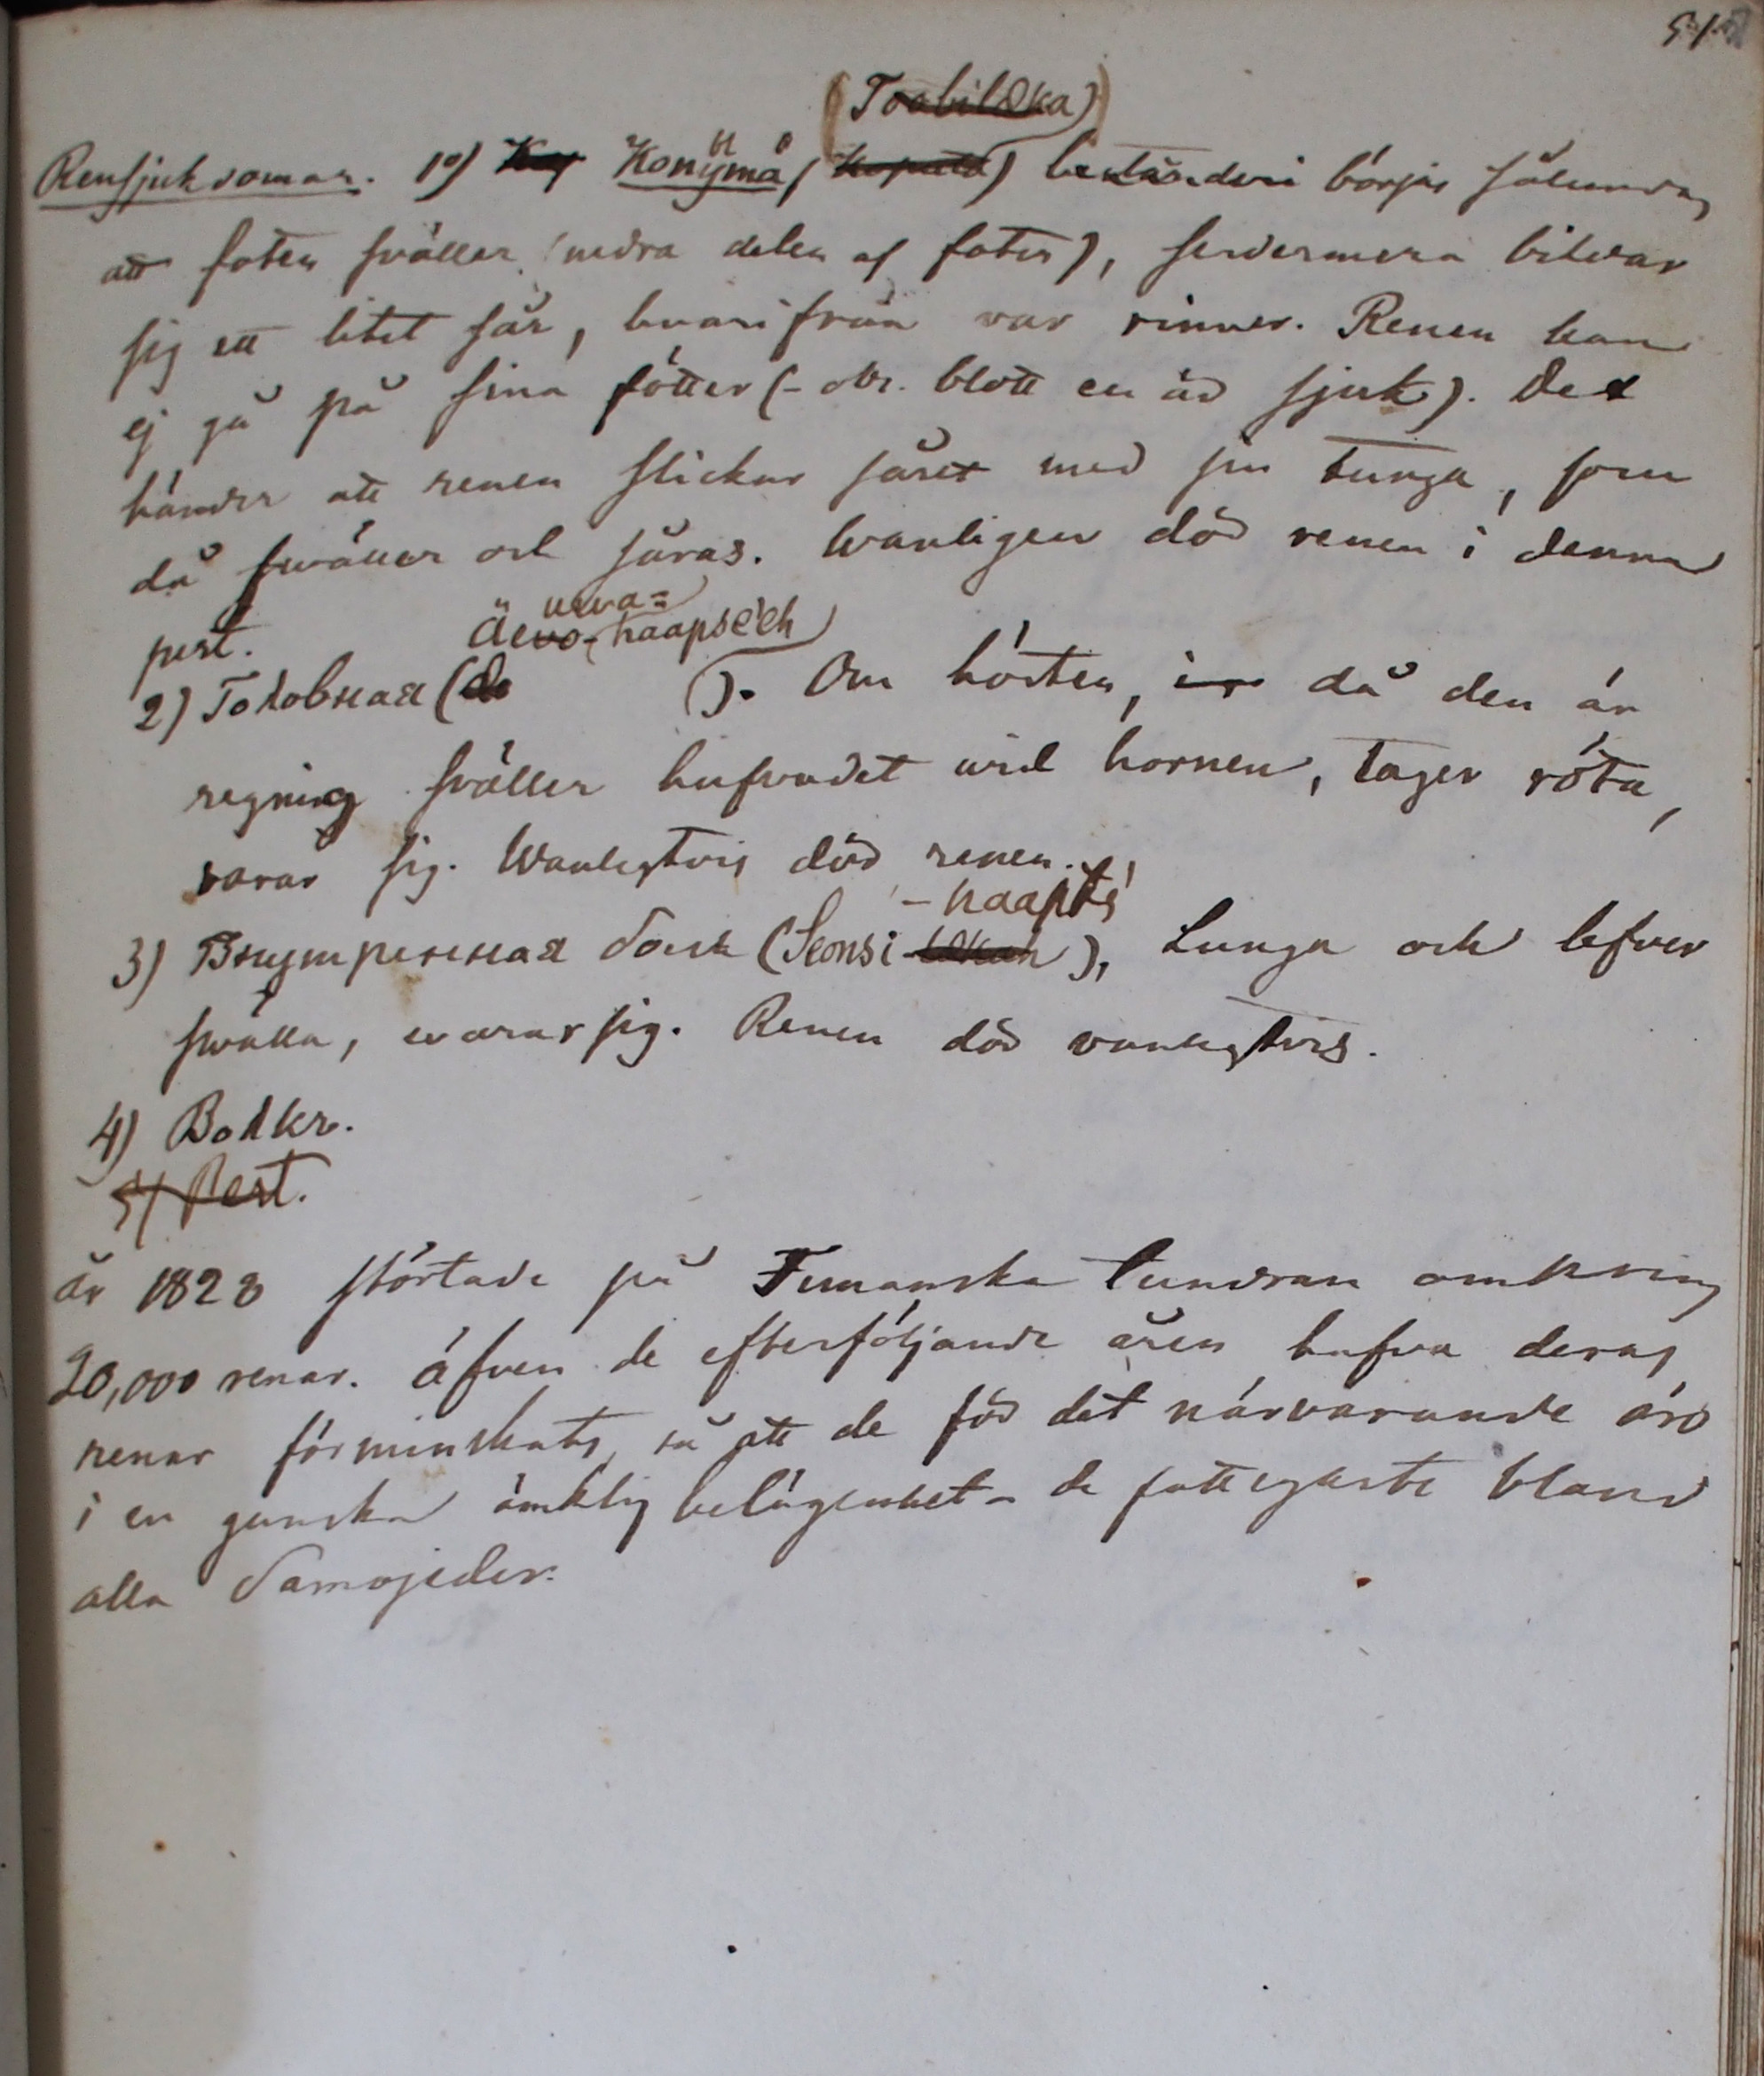 51
(Toobileka)
Rensjukdomar. 1º) Kop Konÿmå (kopala) börjas sålunda,
att foten sväller (nedra delen af foten), sedermera bildar
sig ett litet sår, hvarifrån var rinner. Renen kan
ej gå på sina fötter (- obs. blott en är sjuk). Det
händer att renen slickar såret med sin tunga, som
då svåller och såras. Wanligen död renen i denna
pest.
urva=
Äevo-haapse'eh
2) Головная (de ). Om hösten, då den är
regnig sväller hufvudet vid hornen, tager röta,
varar sig. Wanligtvis död renen.
- haapts'
3) Внутренная боль (Seonsi ), Lunga och lefver
svälla, varar sig. Renen död vanligtvis.
4) Волкъ.
5) Pest.
År 1828 störtade på Timanska tundran omkring
20,000 renar. Äfven de efterföljande åren hafva deras
renar förminskats, så att de för det närvarande äro
i en ganska ömklig belägenhet - de fattigaste bland
alla Samojeder.